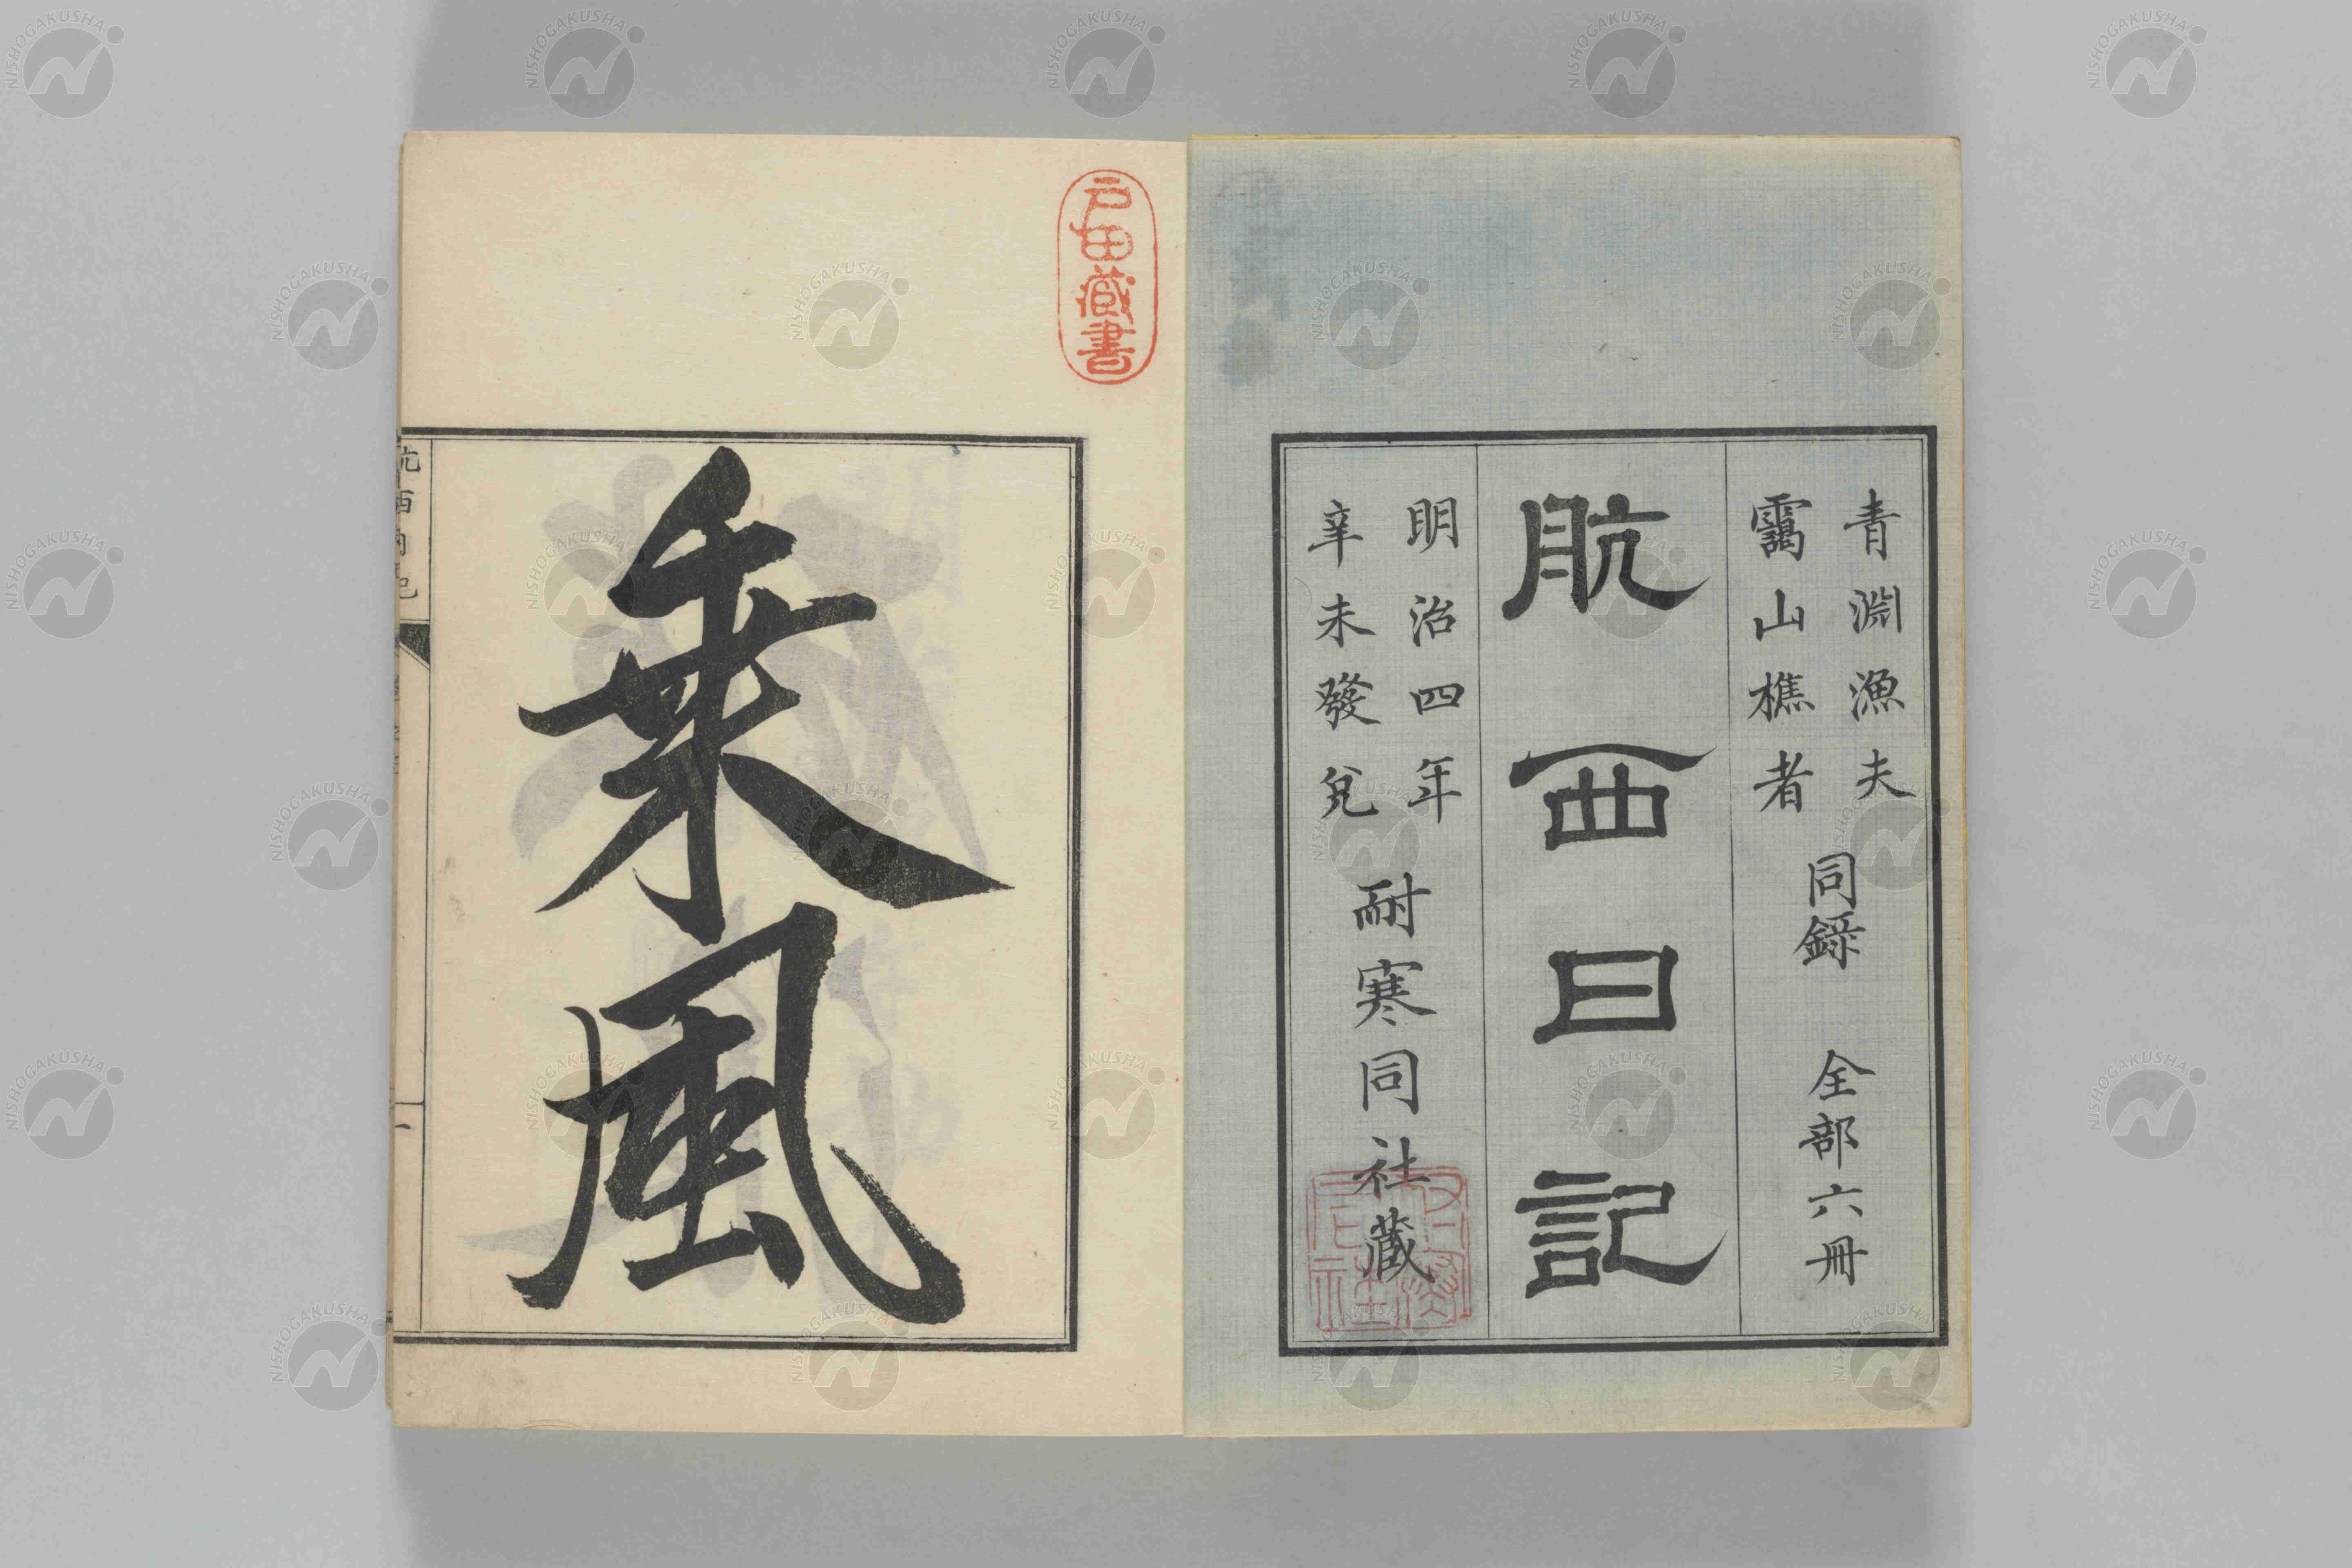 青淵漁夫
靄山樵者
同錄
全部六冊
航西日記
明治四年
辛未發兌
耐寒同社藏
戸田藏書
乘風
NISHOGAKUSHA